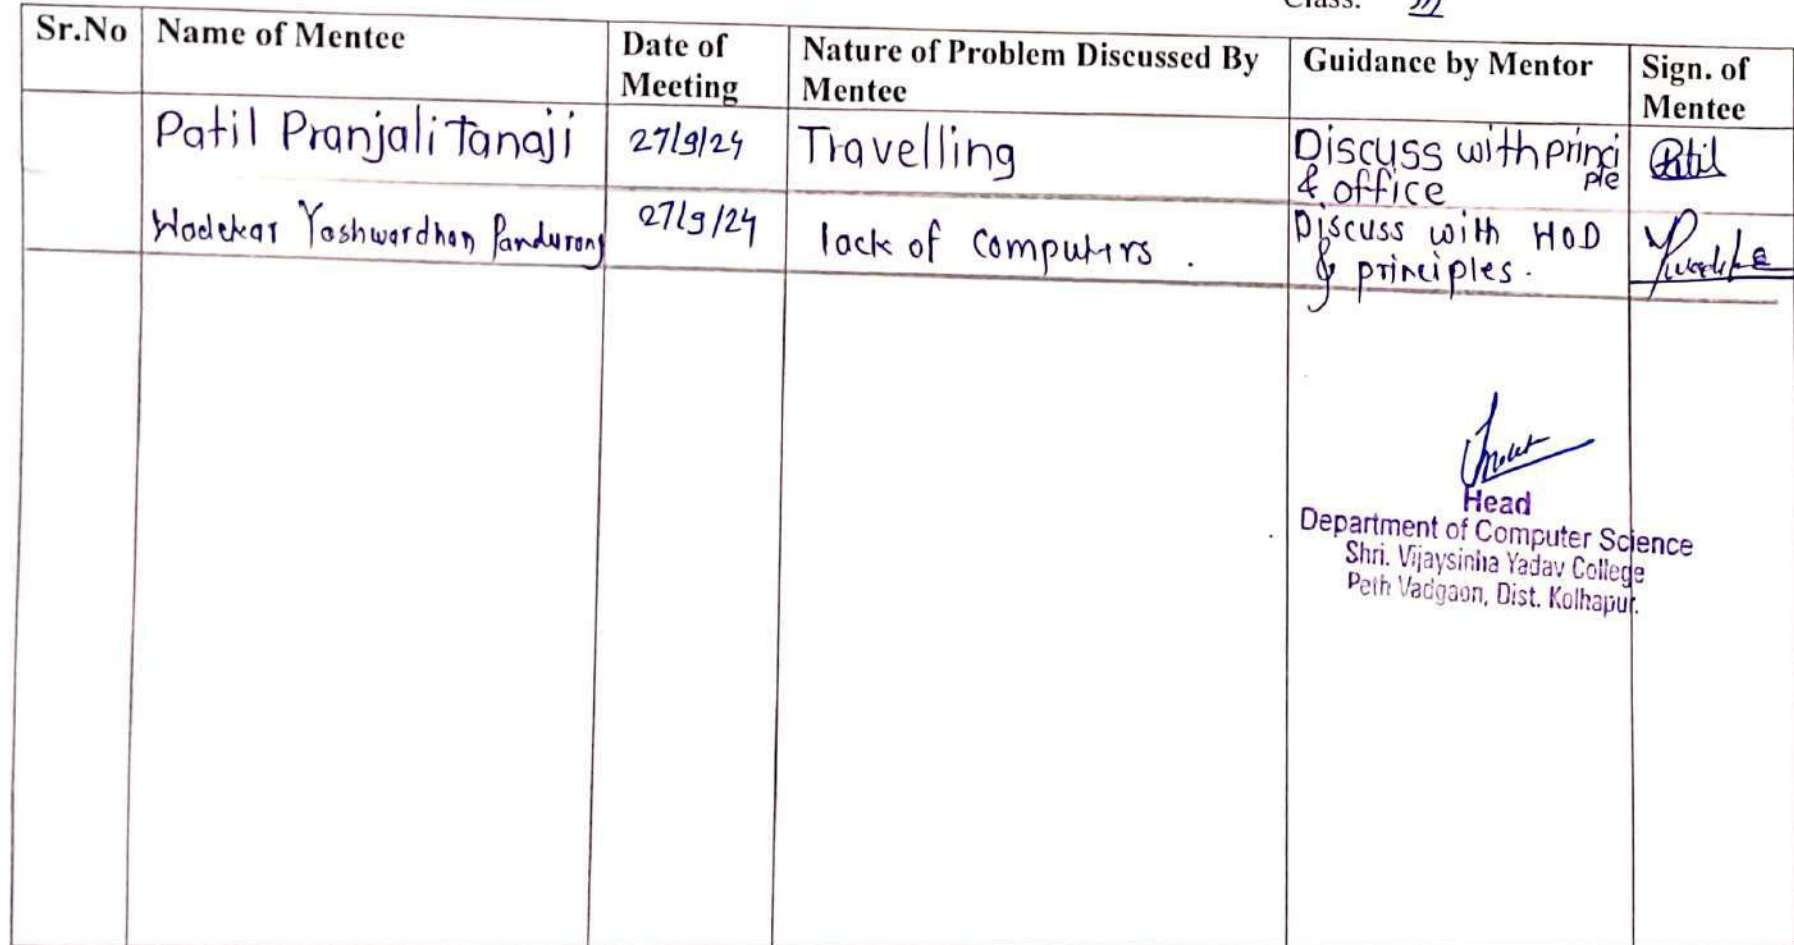 Class: III
Sr.No Name of Mentee Date of Meeting Nature of Problem Discussed By Mentee Guidance by Mentor Sign. of Mentee
Patil Pranjali Tanaji 27/9/24 Travelling Discuss with principle & office Patil
Wadekar Yashwardhan Pandurang 27/9/24 lack of computers . Discuss with HOD & principles.
Head
Department of Computer Science
Shri. Vijaysinha Yadav College
Peth Vadgaon, Dist. Kolhapur.